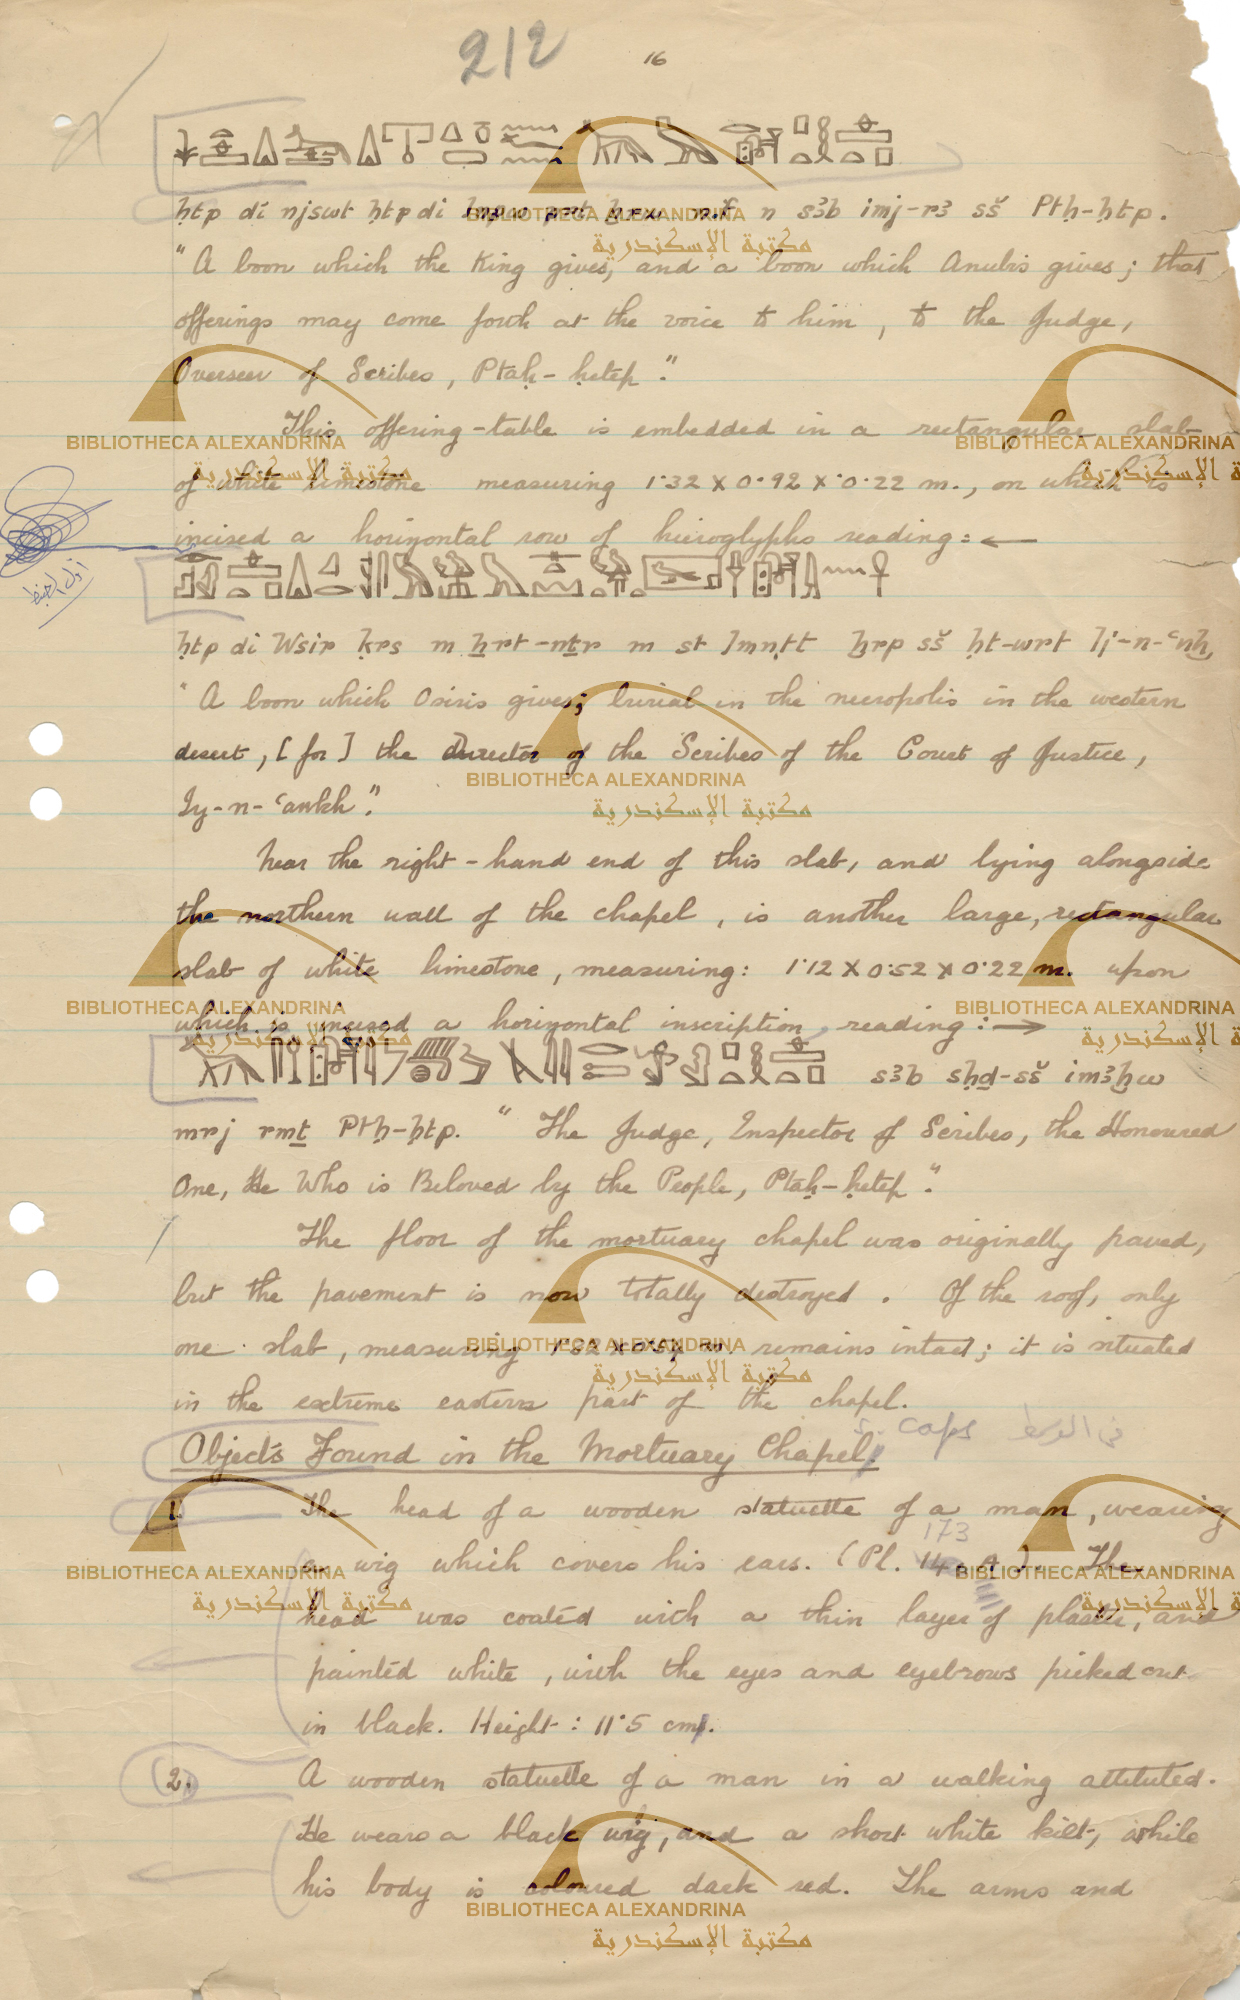 212
16
ḥtp di njswt ḥtp di n s3b imj-r3 sš Ptḥ-ḥtp.
"A boon which the King gives, and a boon which Anubis gives; that
offerings may come forth at the voice to him, to the Judge,
Overseer of Scribes, Ptaḥ-ḥetep".
This offering-table is embedded in a rectangular slab
of white limestone measuring 1·32 X 0·92 X 0·22 m., on which is
incised a horizontal row of hieroglyphs reading: ←
ḥtp di Wsir ḳrs m ẖrt-nṯr m st Imntt ḫrp sš ḥt-wrt Ij-n-ʿnḫ
"A boon which Osiris gives; burial in the necropolis in the western
desert, [for] the Director of the Scribes of the Court of Justice,
Iy-n-ʿankh".
Near the right-hand end of this slab, and lying alongside
the northern wall of the chapel, is another large, rectangular
slab of white limestone, measuring: 1·12 X 0·52 X 0·22 m. upon
which is incised a horizontal inscription reading: →
s3b sḥḏ-sš im3ḫw
mrj rmṯ Ptḥ-ḥtp. "The Judge, Inspector of Scribes, the Honoured
One, He Who is Beloved by the People, Ptaḥ-ḥetep".
The floor of the mortuary chapel was originally paved,
but the pavement is now totally destroyed. Of the roof, only
one slab, measuring m. remains intact; it is situated
in the extreme eastern part of the chapel.
s. caps
Objects Found in the Mortuary Chapel:
1. The head of a wooden statuette of a man, wearing
173
a wig which covers his ears. (Pl. 14 A). The
head was coated with a thin layer of plaster, and
painted white, with the eyes and eyebrows picked out
in black. Height: 11·5 cm.
2. A wooden statuette of a man in a walking attituted.
He wears a black wig, and a short white kilt, while
his body is coloured dark red. The arms and
BIBLIOTHECA ALEXANDRINA
مكتبة الإسكندرية
BIBLIOTHECA ALEXANDRINA
مكتبة الإسكندرية
BIBLIOTHECA ALEXANDRINA
مكتبة الإسكندرية
BIBLIOTHECA ALEXANDRINA
مكتبة الإسكندرية
BIBLIOTHECA ALEXANDRINA
مكتبة الإسكندرية
BIBLIOTHECA ALEXANDRINA
مكتبة الإسكندرية
BIBLIOTHECA ALEXANDRINA
مكتبة الإسكندرية
BIBLIOTHECA ALEXANDRINA
مكتبة الإسكندرية
BIBLIOTHECA ALEXANDRINA
مكتبة الإسكندرية
BIBLIOTHECA ALEXANDRINA
مكتبة الإسكندرية